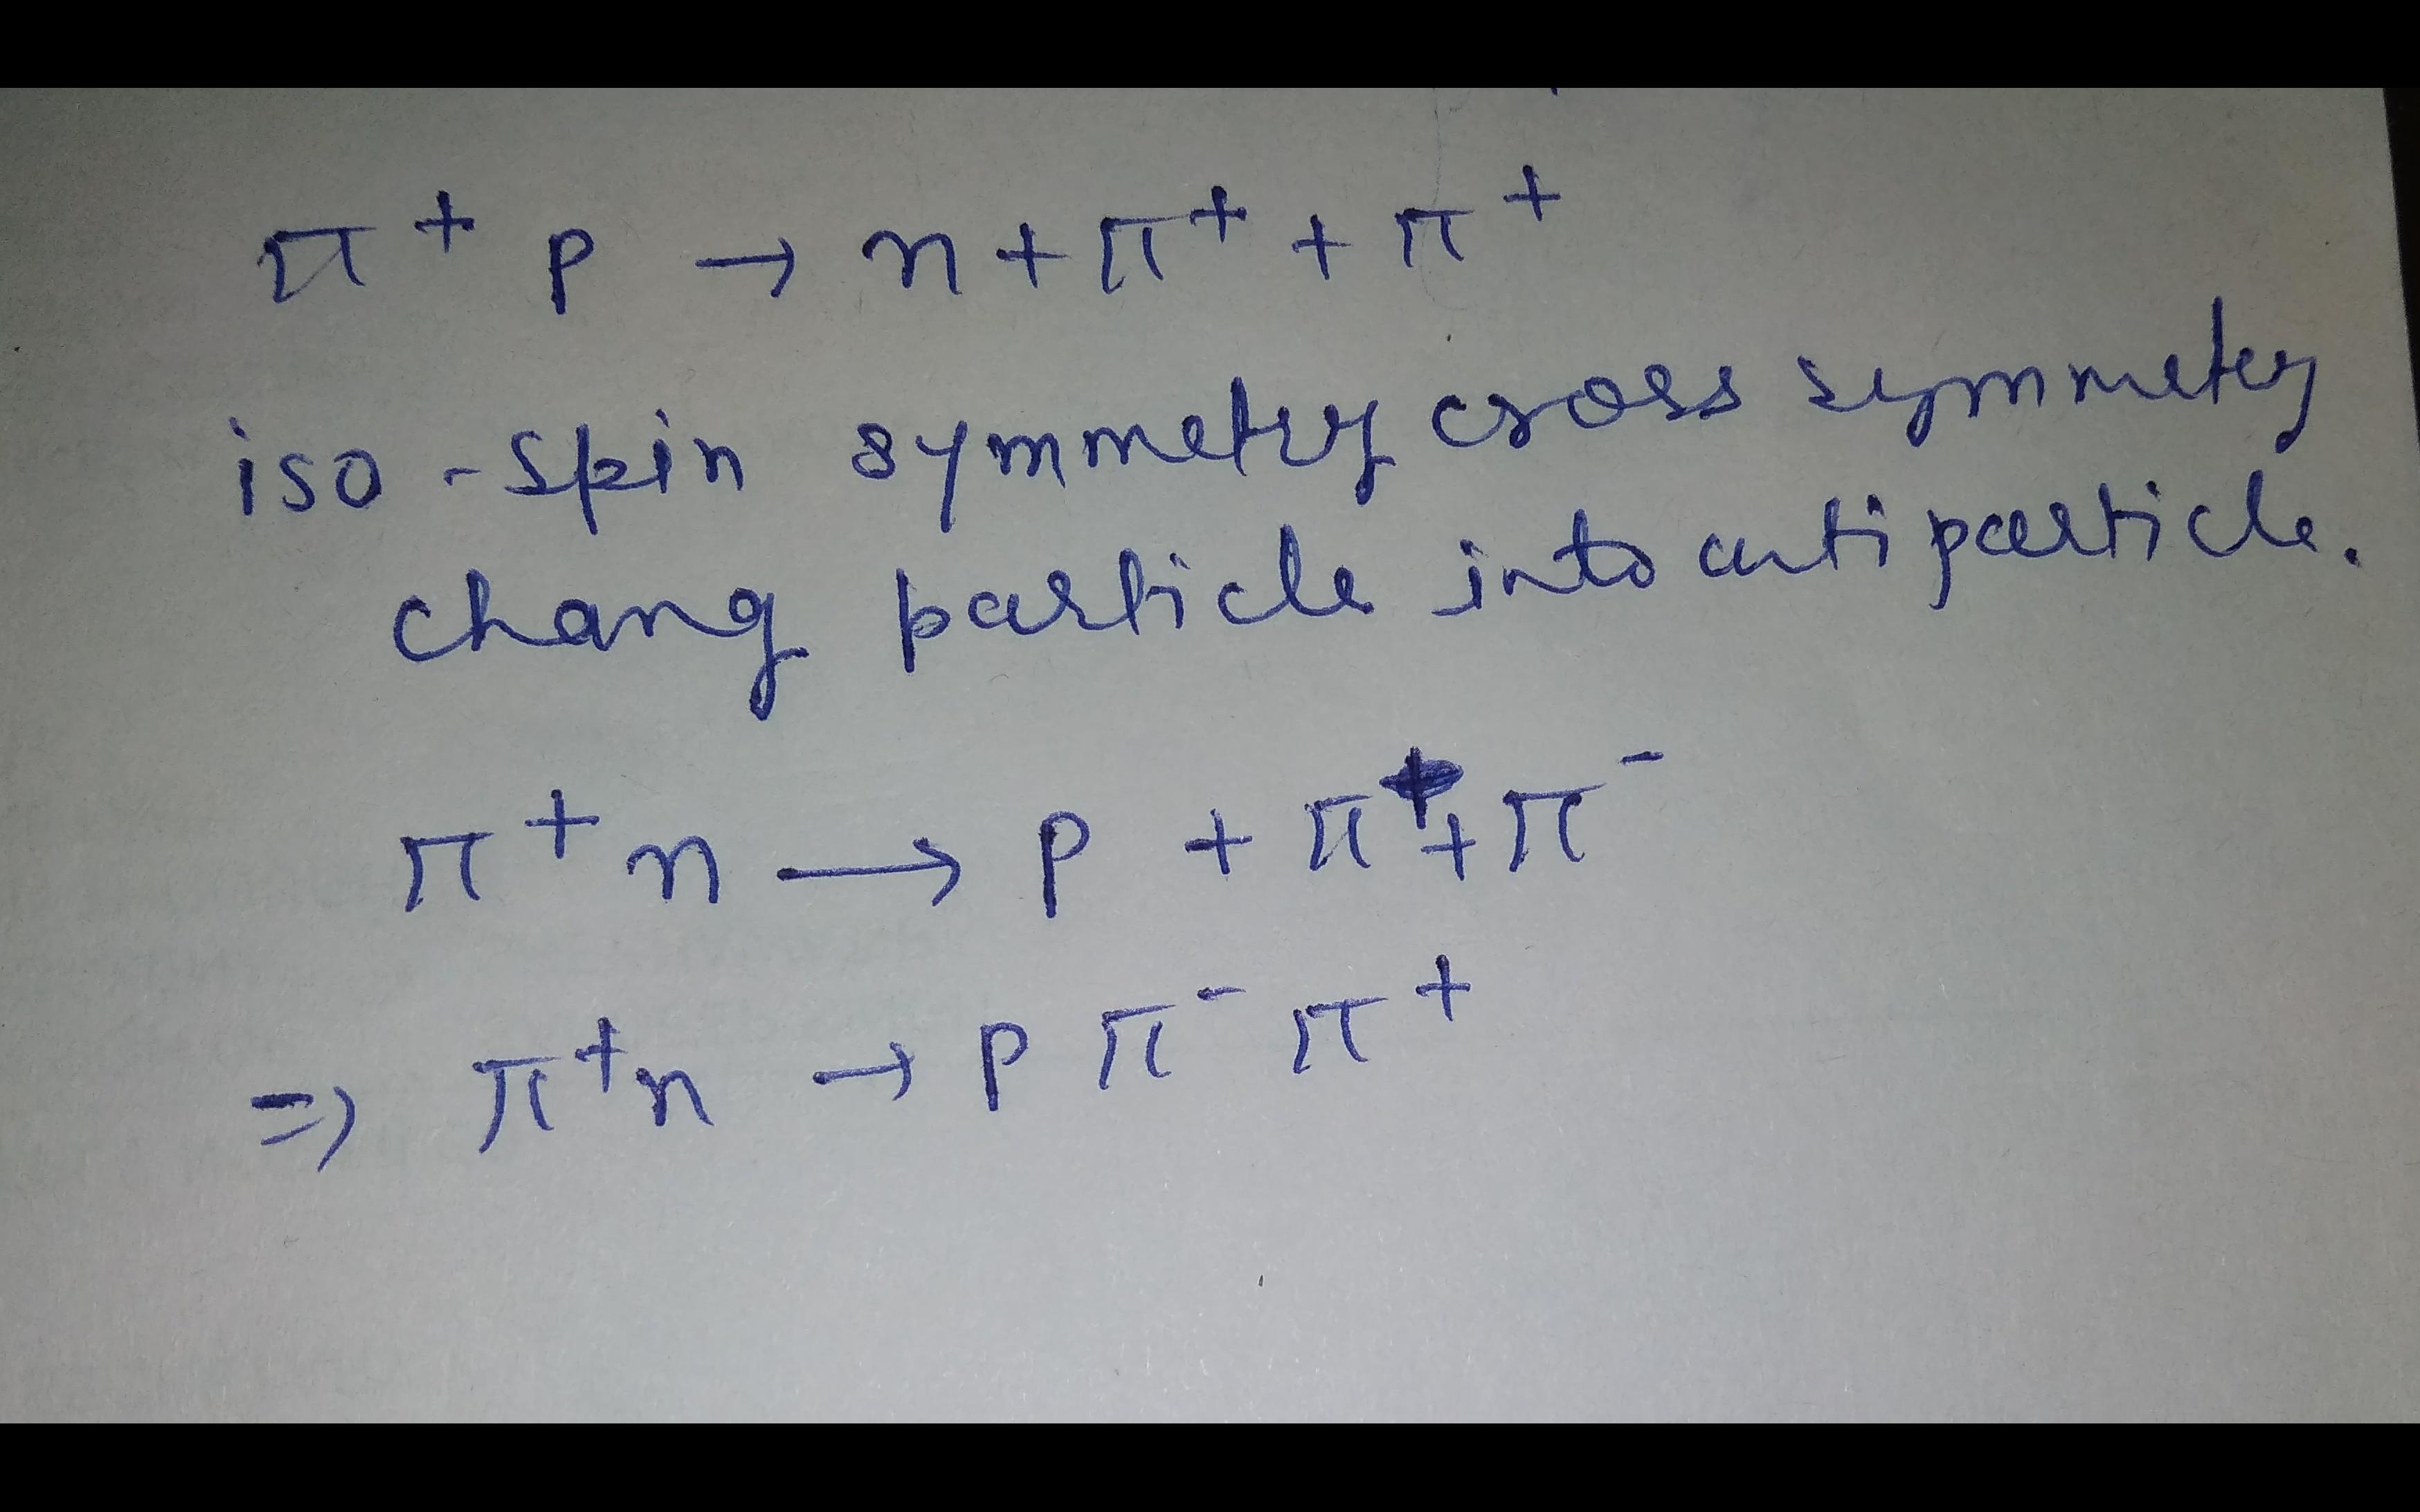 π⁺ p → n + π⁺ + π⁺
iso-spin symmetry cross symmetry
chang particle into antiparticle.
π⁺ n → p + π⁺ + π⁻
⇒ π⁺n → p π⁻ π⁺